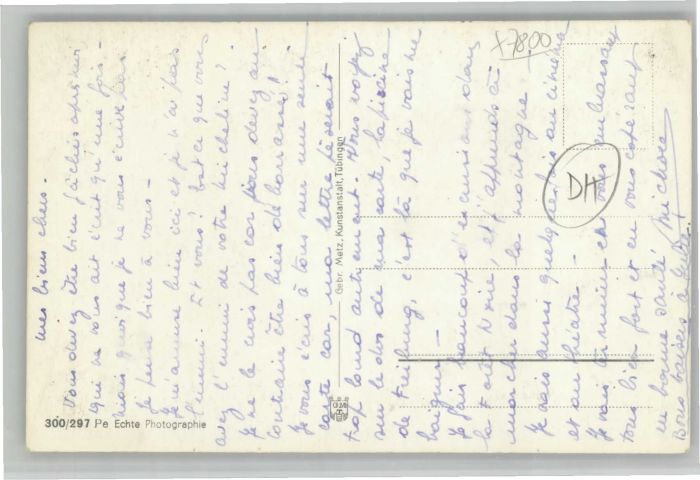 mes biens chers.
Vous devez être bien fâchés après moi
qui ne vous ait écrit qu'une fois -
mais quoique je ne vous écrive pas
je pense bien à vous -
Je m'amuse bien ici et je n'ai pas
l'ennui. Et vous? Est ce que vous
avez l'ennui de votre micheline?
Je ne le crois pas car vous devez au
contraire être bien débarassés!
Je vous écris à tous sur une seule
carte car, ma lettre pèserait
trop lourd autrement. Vous voyez
sur le dos de ma carte, la piscine
de Freiburg, c'est là que je vais me
baigner -
Je fais beaucoup d'excursions dans
la Forêt Noire, et j'apprends à
marcher dans la montagne!
Je vais aussi quelquefois au cinéma
et au théâtre -
Je vais en finir en vous embrassant
tous bien fort et en vous espérant
en bonne santé, Michou
Bons baisers à
X-7800
DH
Gebr. Metz, Kunstanstalt, Tübingen
300/297 Pe Echte Photographie